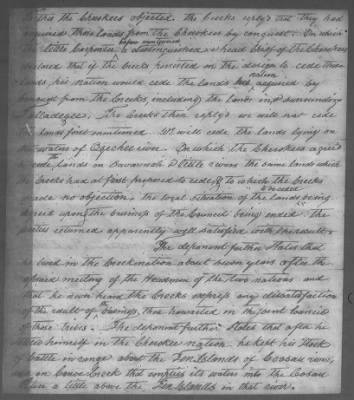 To this the Cherokees objected. The Creeks reply'd that they had
acquired those lands from the Cherokees by conquest. On which
before mentioned
the Little Carpenter a distinguished & head Chief of the Cherokees
declared that if the Creeks persisted in the design to cede those
lands, his nation would cede the lands acquired by
nation
conquest from the Creeks, including the lands in & surrounding
Talladega. The Creeks then reply'd we will not cede
lands first mentioned. We will cede the lands lying on
the waters of Ogechee river. On which the Cherokees agreed
to cede lands on Savannah & little rivers the same lands which
the Creeks had at first proposed to cede, & to which the Creeks
made no objection. The local situation of the lands being
to be ceded
agreed upon the business of the Council being ended. The
parties returned apparently well satisfied with the result.
The deponent further states that
he lived in the Creek nation about seven years after the
aforesaid meeting of the Headmen of the two nations and
that he never heard the Creeks express any dissatisfaction
of the result of the business, thus transacted in the joint Council
of those tribes. The deponent further states that after he
settled himself in the Cherokee nation he kept his Stock
of Cattle in range about the Ten Islands of Coosau river,
and on Canoe Creek that empties its waters into the Coosau
River a little above the Ten Islands in that river.